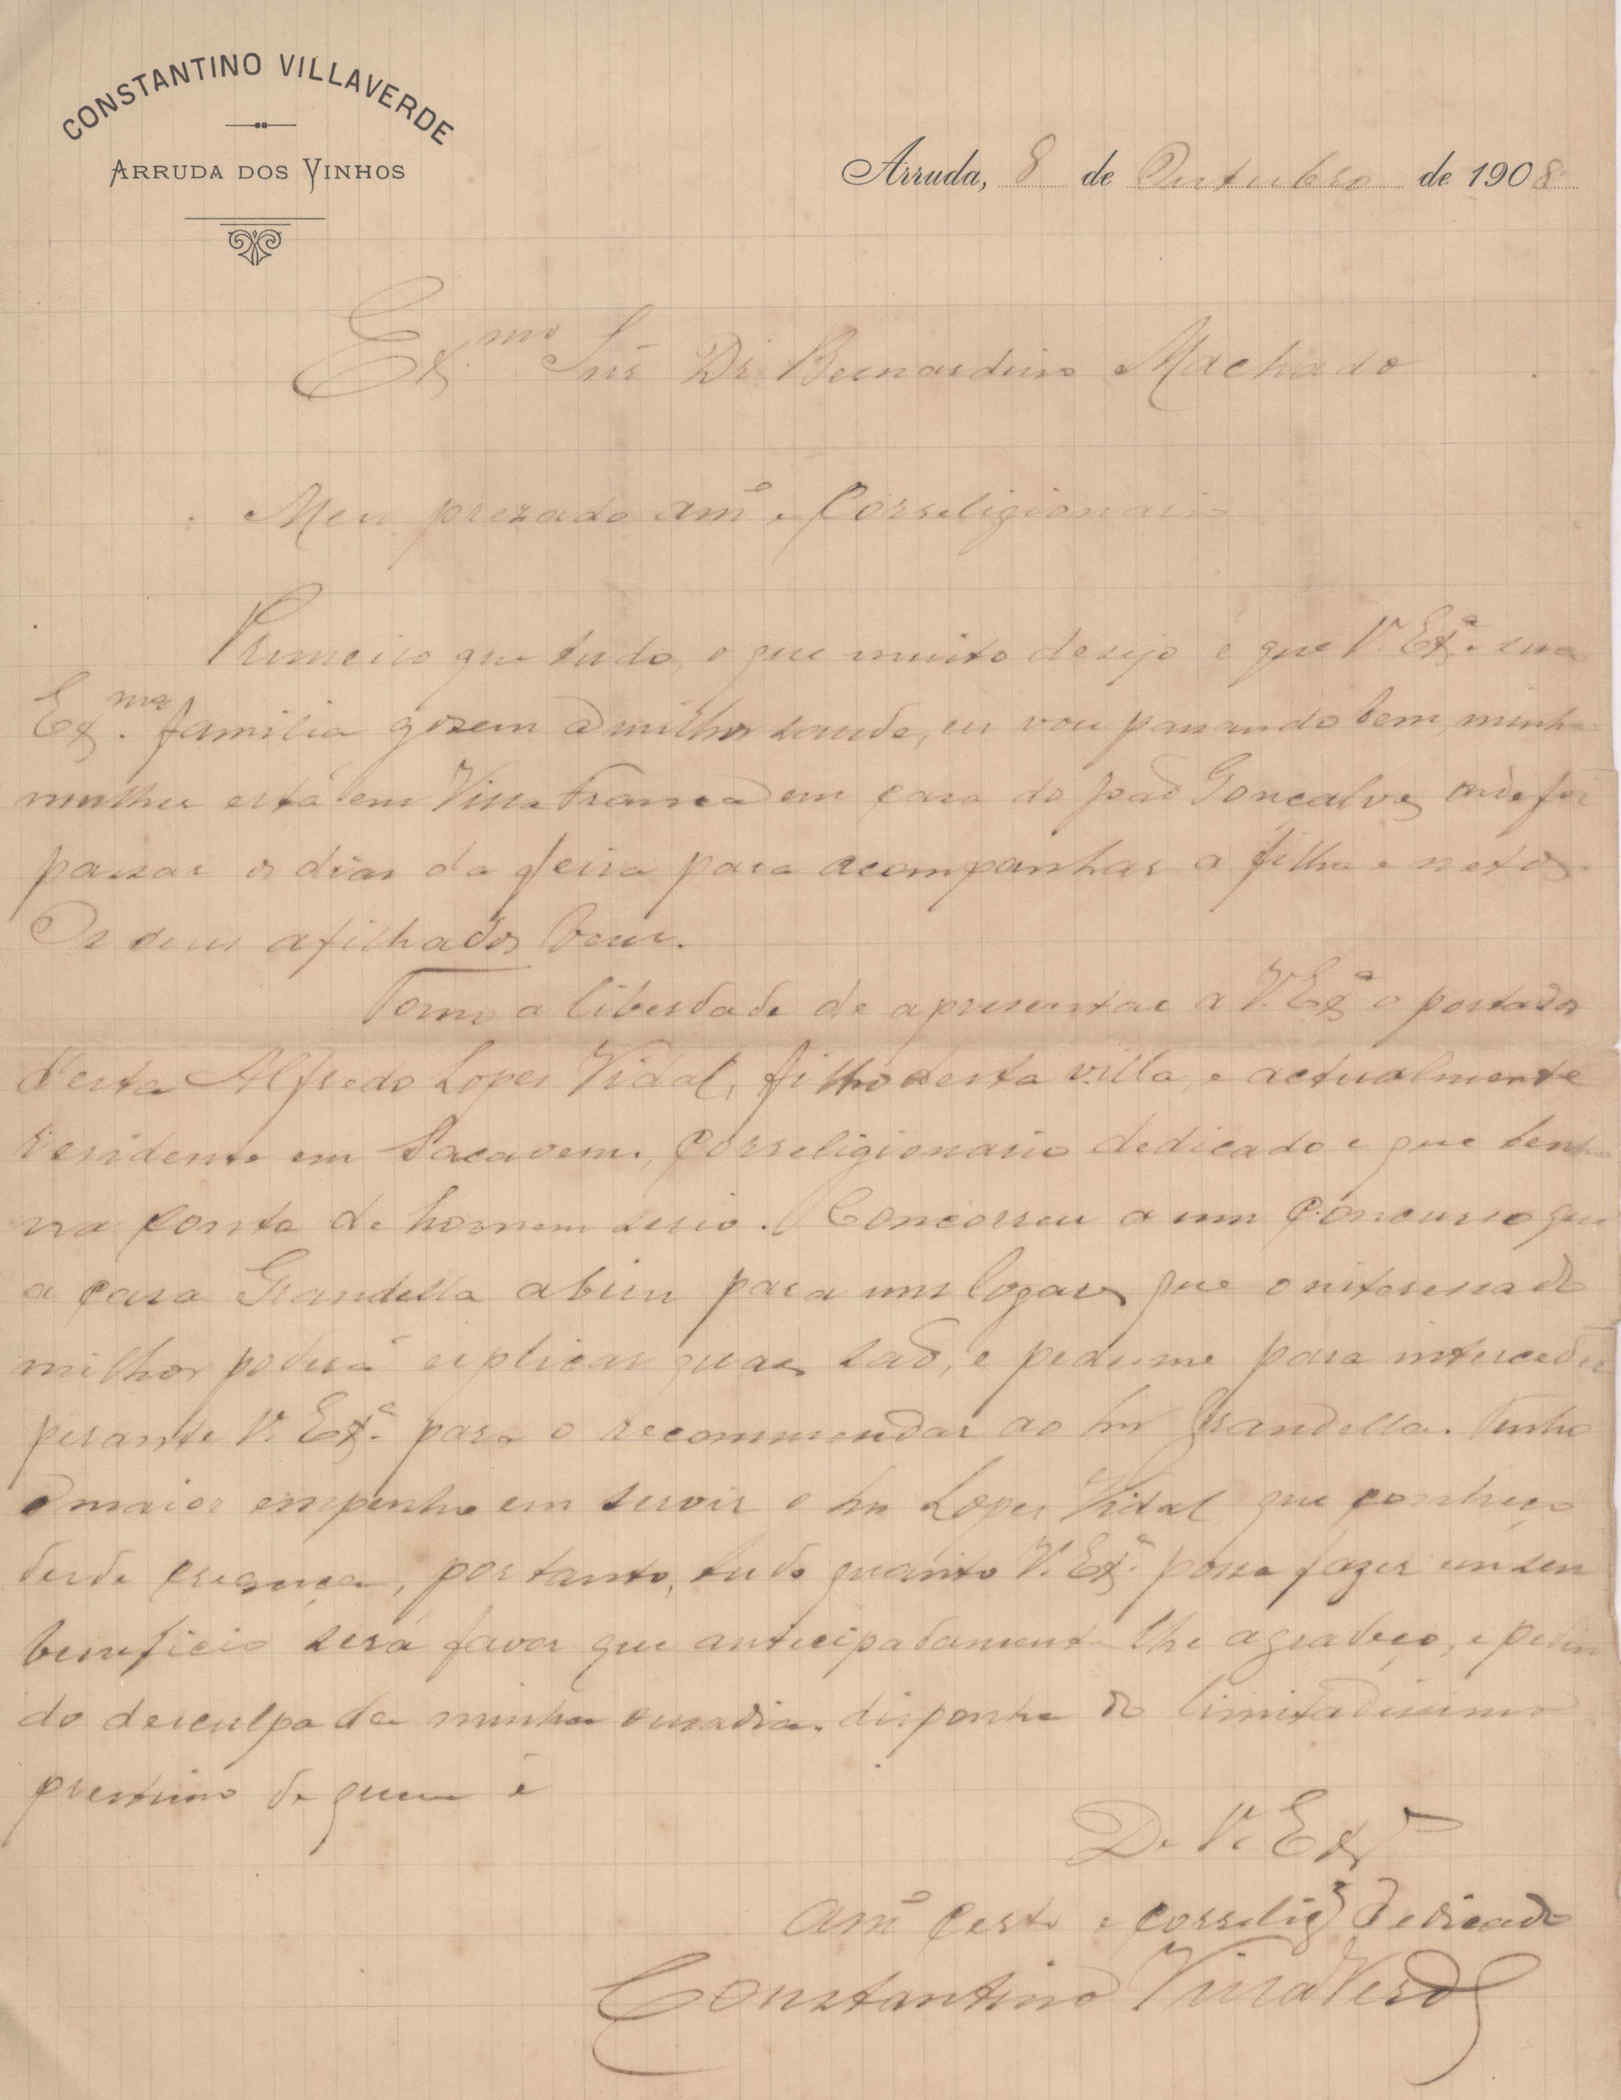 CONSTANTINO VILLAVERDE
ARRUDA DOS VINHOS
Arruda, 8 de Outubro de 1908
Exmo Snr Dr Bernardino Machado
Meu prezado amo e Correligionario
Primeiro que tudo, o que muito desejo é que V. Exa e sua
Exma familia gosem a milhor saude, eu vou passando bem, minha
mulher está em Villa Franca em casa do João Gonçalves onde foi
passar os dias da feira para acompanhar a filha e netos
Os seus afilhados bem.
Tomo a liberdade de apresentar a V. Exa o portador
d'esta Alfredo Lopes Vidal, filho desta villa, e actualmente
residente em Sacavem, correligionario dedicado e que tenho
na conta de homem serio. Concorreu a um concurso que
a casa Grandella abriu para uns logares que o interessado
milhor poderá explicar quaes são, e pede-me para interceder
perante V. Exa para o recommendar ao Snr Grandella. Tenho
o maior empenho em servir o Snr Lopes Vidal que conheço
desde creança, portanto, tudo quanto V. Exa possa fazer em seu
beneficio será favor que antecipadamente lhe agradeço, e pedin
do desculpa da minha ousadia, disponha do limitadissimo
prestimo de quem é
De V. Exa
amo certo e correlig dedicado
Constantino VillaVerde